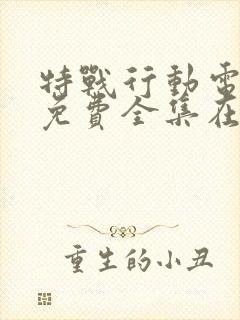 特戰行動電
免費全集在
重生的小丑